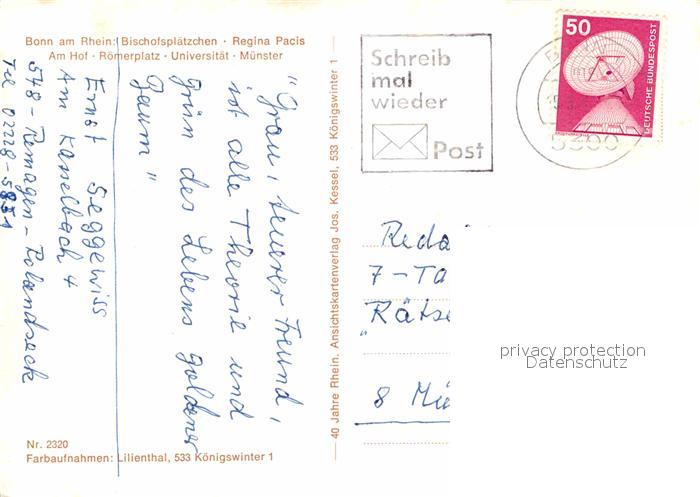 Bonn am Rhein: Bischofsplätzchen · Regina Pacis
Am Hof · Römerplatz · Universität · Münster
Ernst Seggewiss
Am Kasselbach 4
548-Remagen-Rolandseck
Tel 02228-5831
"Grau, teurer Freund,
ist alle Theorie und
grün des Lebens goldener
Baum"
Nr. 2320
Farbaufnahmen: Lilienthal, 533 Königswinter 1
40 Jahre Rhein. Ansichtskartenverlag Jos. Kessel, 533 Königswinter 1
Schreib
mal
wieder
Post
50
DEUTSCHE BUNDESPOST
5300
Reda
7-Ta
"Rätse
8 Mü
privacy protection
Datenschutz